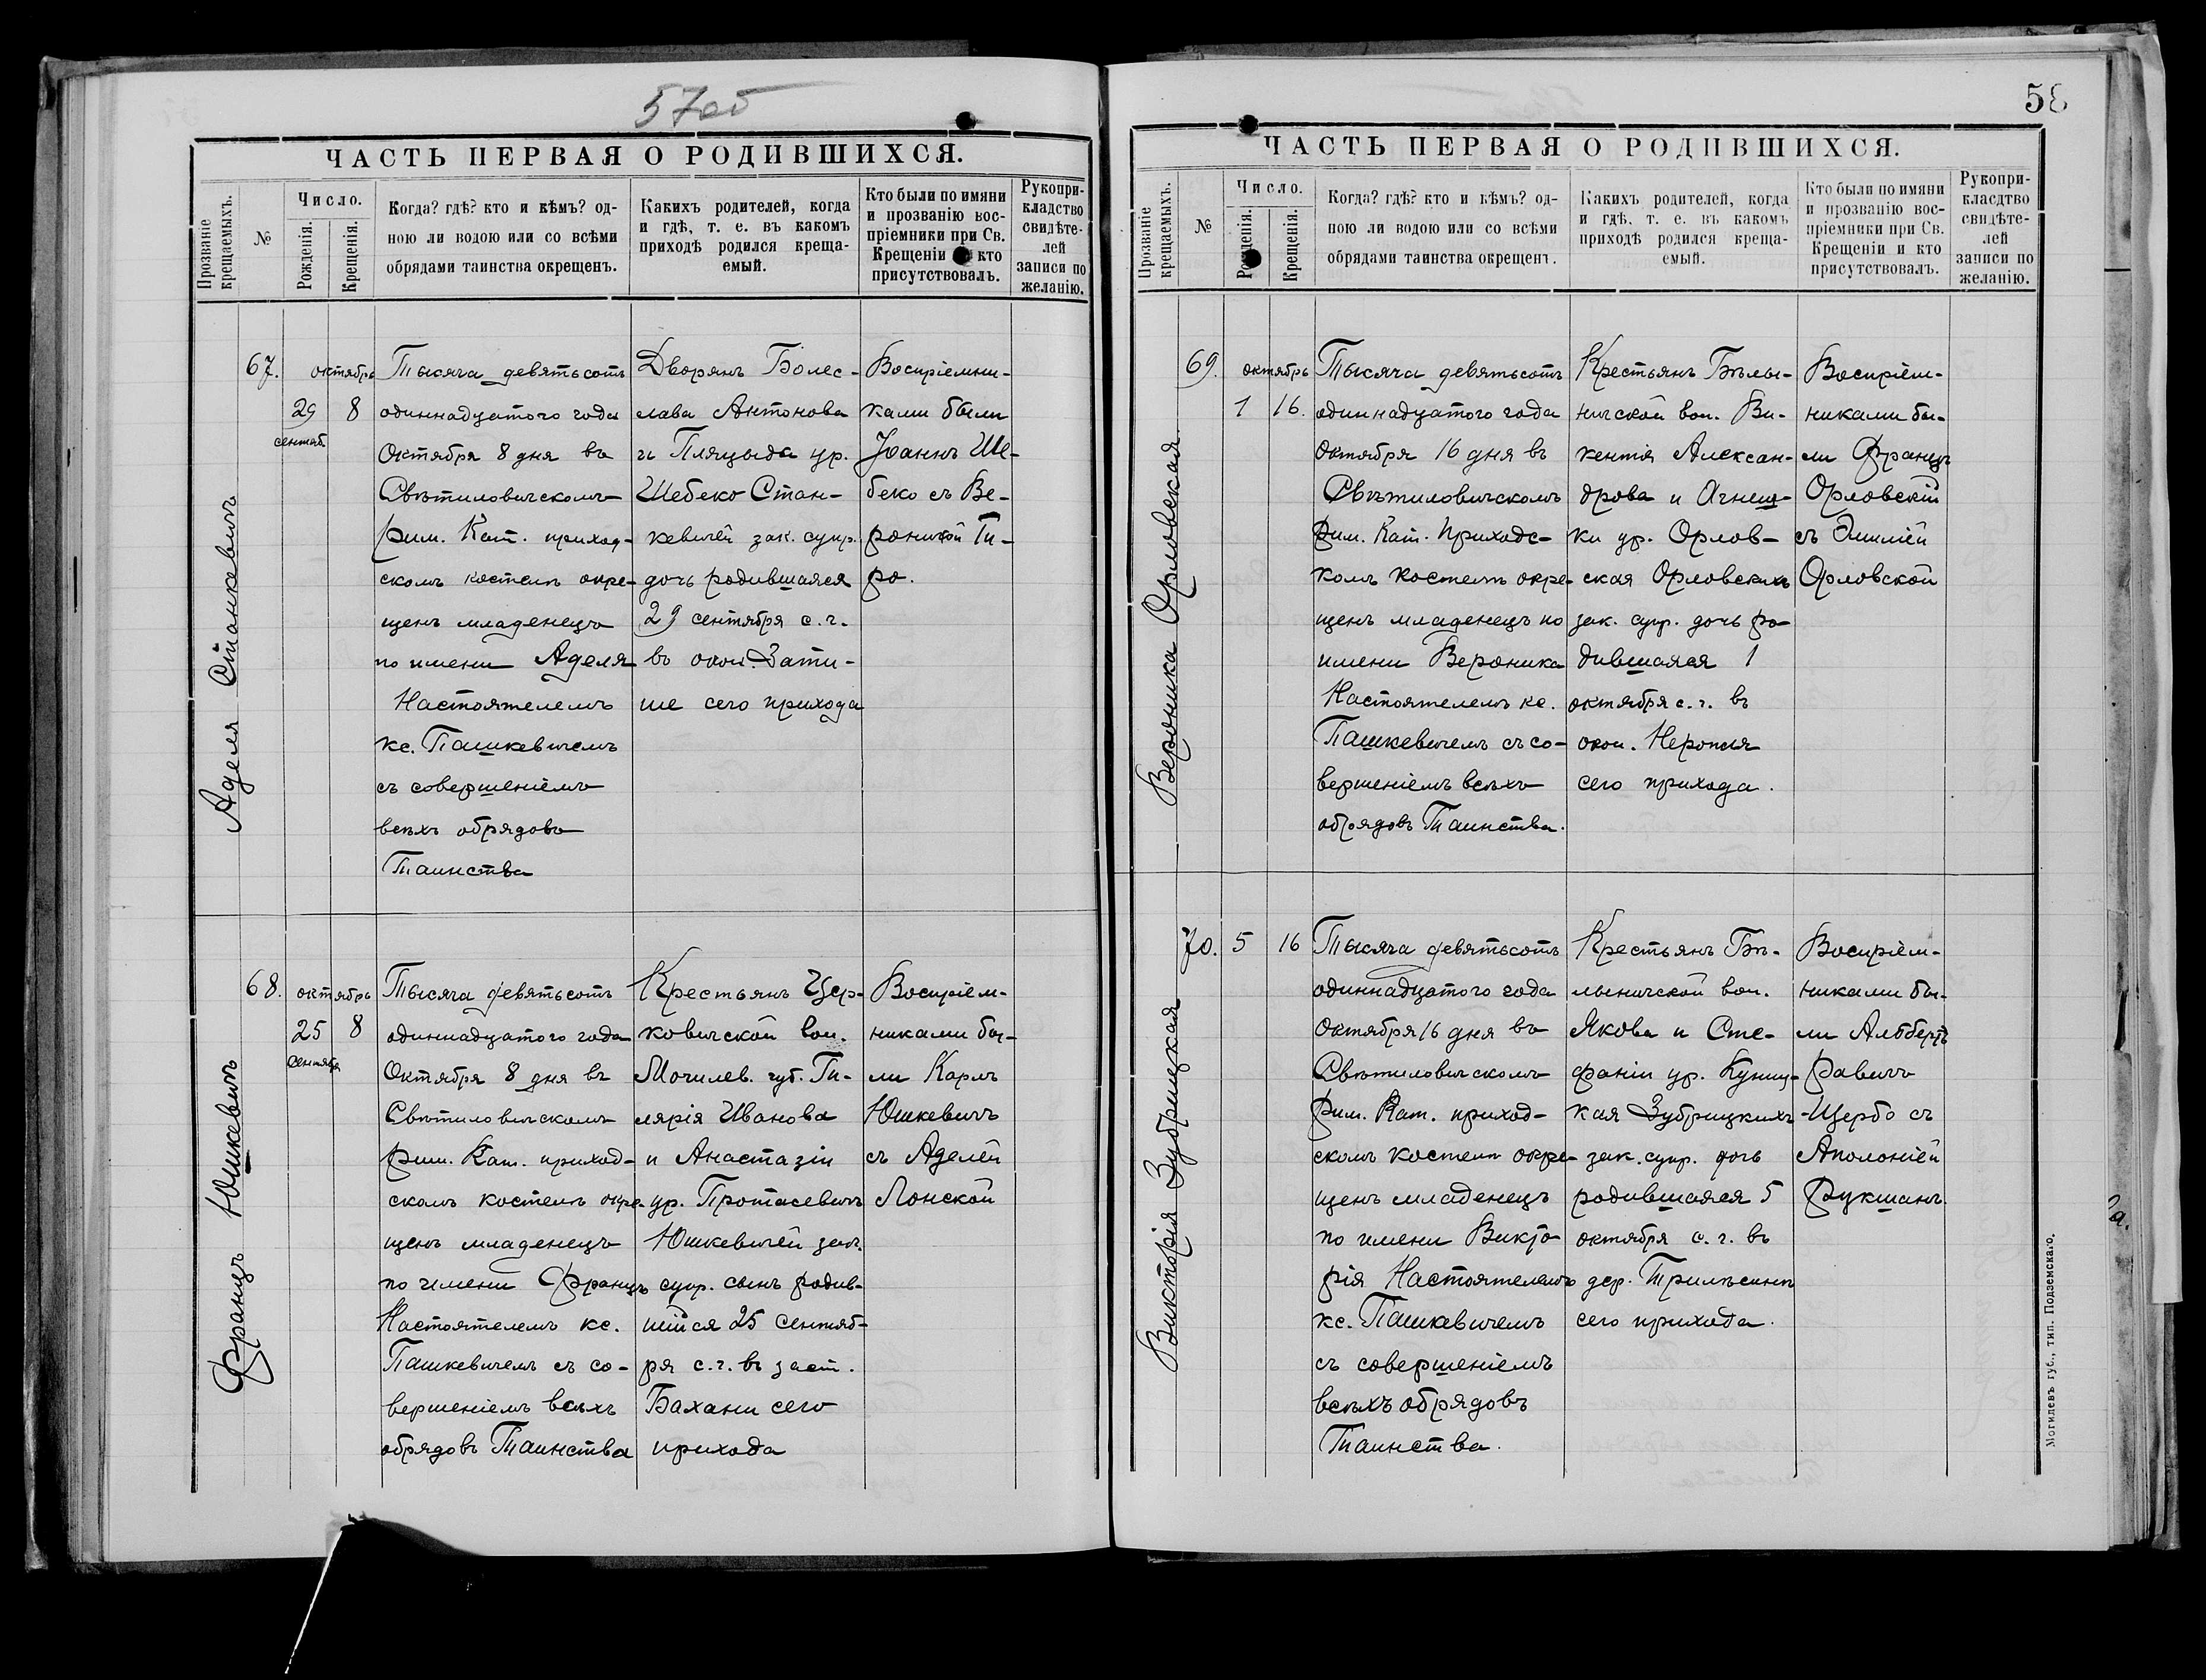 57об
ЧАСТЬ ПЕРВАЯ О РОДИВШИХСЯ.
Прозваніе крещаемыхъ.
№
Число.
Рожденія.
Крещенія.
Когда? гдѣ? кто и кѣмъ? од-
ною ли водою или со всѣми
обрядами таинства окрещенъ.
Какихъ родителей, когда
и гдѣ, т. е. въ какомъ
приходѣ родился креща-
емый.
Кто были по имяни
и прозванію вос-
пріемники при Св.
Крещеніи кто
присутствовалъ.
Рукопри-
кладство
свидѣте-
лей
записи по
желанію.
Аделя Станкевичъ
67.
октябрь
29 8
сентяб.
Тысяча девятьсотъ
одиннадцатого года
Октября 8 дня въ
Свѣтиловичскомъ
Рим. Кат. приход-
скомъ костелѣ окре-
щенъ младенецъ
по имени Аделя
Настоятелемъ
кс. Пашкевичемъ
съ совершеніемъ
всѣхъ обрядовъ
Таинства
Дворянъ Болес-
лава Антонова
и Пляцыда ур.
Шебеко Стан-
кевичей зак. супр.
дочь родившаяся
29 сентября с.г.
въ окол. Зати-
ше сего прихода
Воспріемни-
ками были
Іоаннъ Ше-
беко съ Ве-
роникой Ги-
ро.
Францъ Юшкевичъ
68.
октябрь
25 8
сентября
Тысяча девятьсотъ
одиннадцатого года
Октября 8 дня въ
Свѣтиловичскомъ
Рим. Кат. приход-
скомъ костелѣ окре-
щенъ младенецъ
по имени Францъ
Настоятелемъ кс.
Пашкевичемъ съ со-
вершеніемъ всѣхъ
обрядовъ Таинства
Крестьянъ Цер-
ковичской вол.
Могилев. губ. Ги-
лярія Иванова
и Анастазіи
ур. Протасевичъ
Юшкевичей зак.
супр. сынъ родив-
шійся 25 Сентяб-
ря с.г. въ заст.
Бахани сего
прихода
Воспріем-
никами бы-
ли Карлъ
Юшкевичъ
съ Аделей
Лонской
58
ЧАСТЬ ПЕРВАЯ О РОДИВШИХСЯ.
Прозваніе крещаемыхъ.
№
Число.
Рожденія.
Крещенія.
Когда? гдѣ? кто и кѣмъ? од-
ною ли водою или со всѣми
обрядами таинства окрещенъ.
Какихъ родителей, когда
и гдѣ, т. е. въ какомъ
приходѣ родился креща-
емый.
Кто были по имяни
и прозванію вос-
пріемники при Св.
Крещеніи и кто
присутствовалъ.
Рукопри-
класдтво
свидѣте-
лей
записи по
желанію.
Вероника Орловская
69.
октябрь
1 16.
Тысяча девятьсотъ
одиннадцатого года
Октября 16 дня въ
Свѣтиловичскомъ
Рим. Кат. Приходс-
комъ костелѣ окре-
щенъ младенецъ по
имени Вероника
Настоятелемъ кс.
Пашкевичемъ съ со-
вершеніемъ всѣхъ
обрядовъ Таинства.
Крестьянъ Бѣлы-
ничской вол. Ви-
кентія Алексан-
дрова и Агнеш-
ки ур. Орлов-
ская Орловскихъ
зак. супр. дочь ро-
дившаяся 1
октября с.г. въ
окол. Неропля
сего прихода.
Воспріем-
никами бы-
ли Францъ
Орловскій
съ Эмиліей
Орловской
Викторія Зубрицкая
70. 5 16
Тысяча девятьсотъ
одиннадцатого года
Октября 16 дня въ
Свѣтиловичскомъ
Рим. Кат. приход-
скомъ костелѣ окре-
щенъ младенецъ
по имени Викто-
рія Настоятелемъ
кс. Пашкевичемъ
съ совершеніемъ
всѣхъ обрядовъ
Таинства.
Крестьянъ Бѣ-
лыничской вол.
Якова и Сте-
фаніи ур. Куниц-
кая Зубрицкихъ
зак. супр. дочь
родившаяся 5
октября с.г. въ
дер. Трилѣсинѣ
сего прихода.
Воспріем-
никами бы-
ли Альбертъ
Равичъ
-Щербо съ
Аполоніей
Рукшанъ.
Могилевъ губ., тип. Подземскаго.